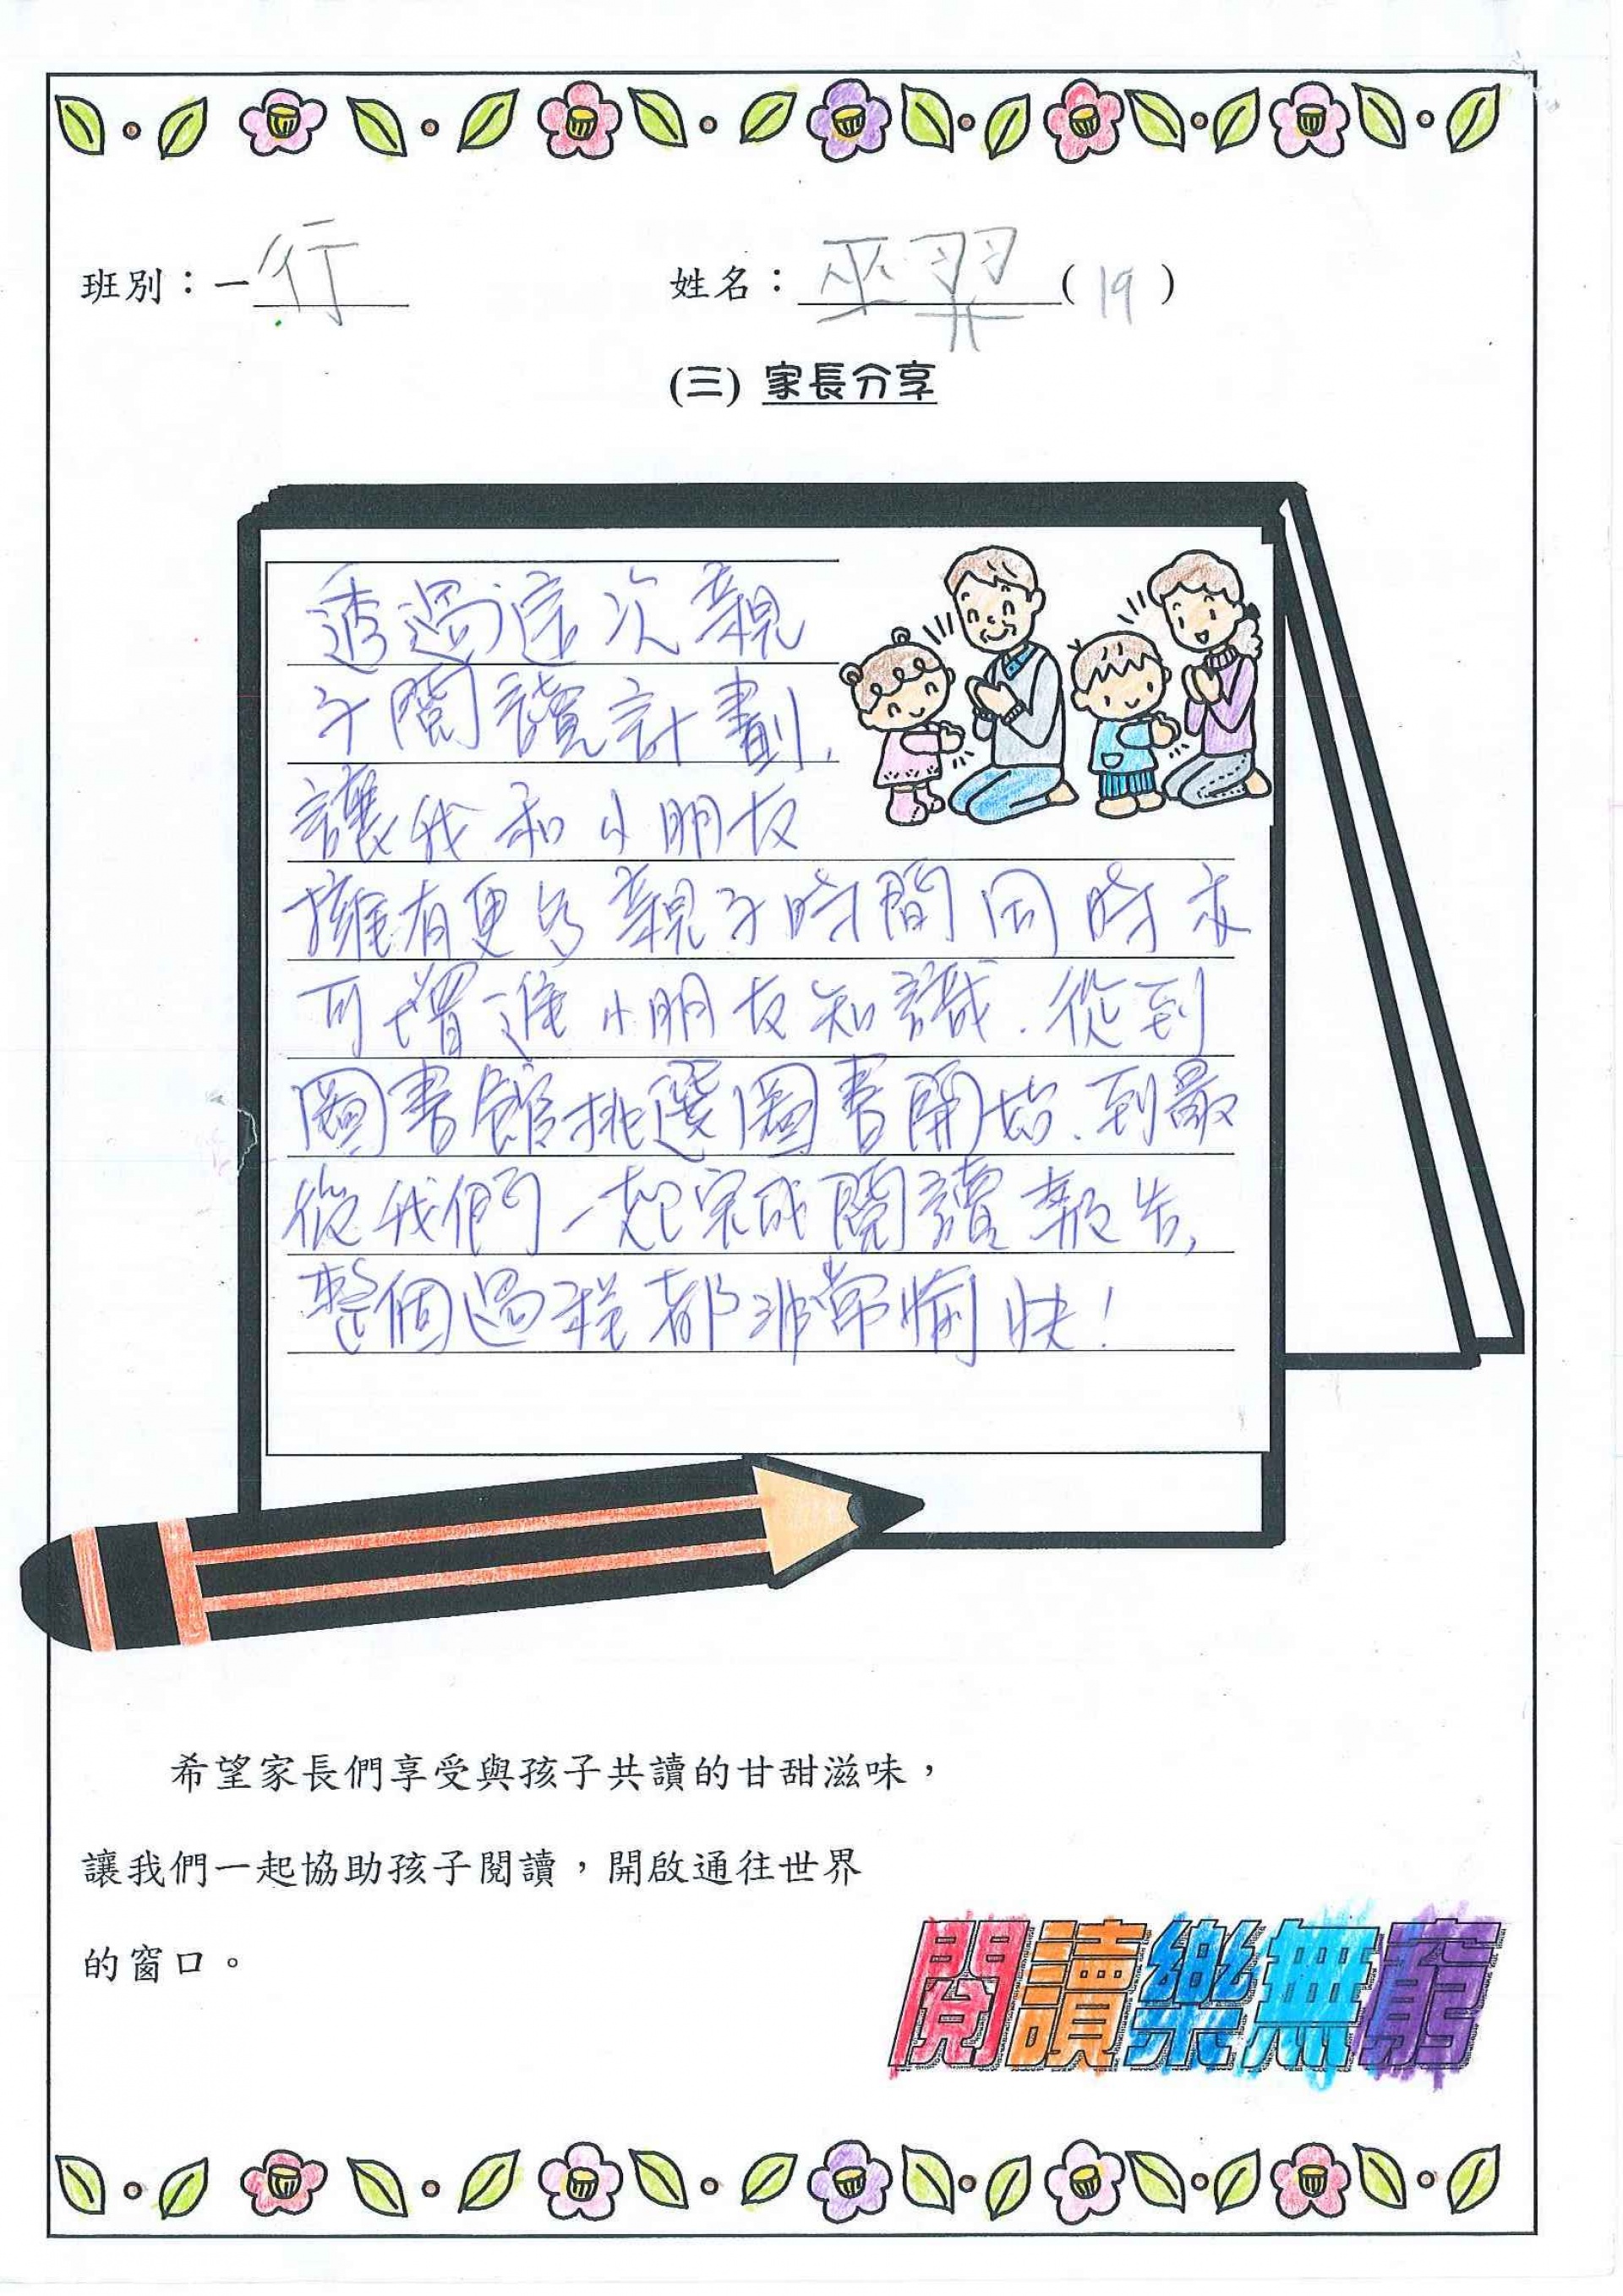 班別：一行 姓名：巫羿(19)
(三) 家長分享
透過這次親
子閱讀計劃,
讓我和小朋友
擁有更多親子時間同時亦
可增進小朋友知識.從到
圖書館挑選圖書開始、到最
後我們一起完成閱讀報告,
整個過程都非常愉快!
希望家長們享受與孩子共讀的甘甜滋味，
讓我們一起協助孩子閱讀，開啟通往世界
的窗口。
閱讀樂無窮